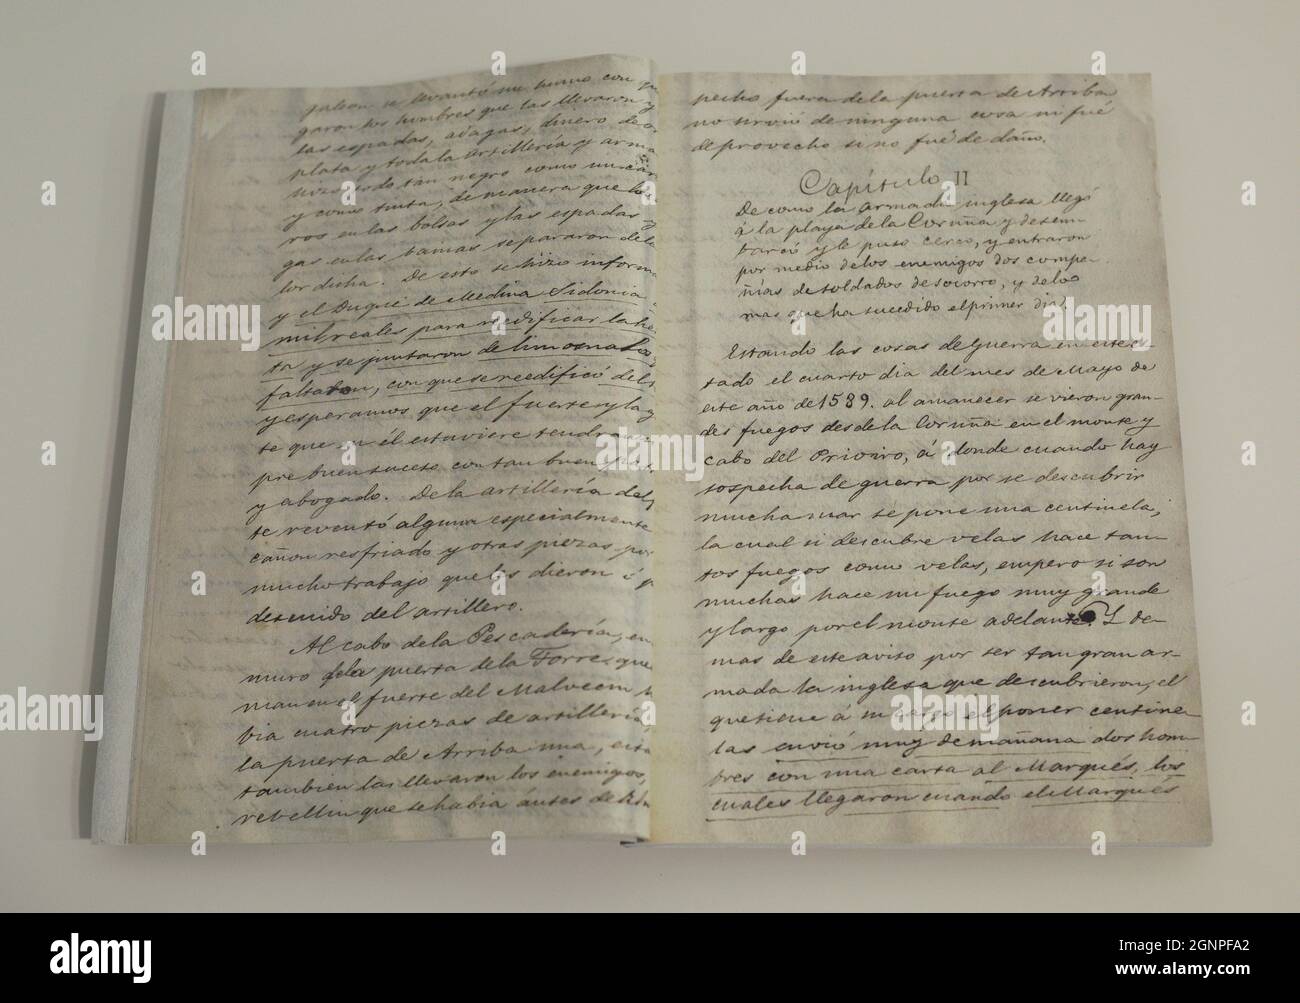 jaban se levantó un humo con que
garon los hombres que las llevaron y
las espadas, adagas, dinero de o
plata y toda la artillería y arma
hizo todo tan negro como un car
y como tinta, de manera que los
ros en las bolsas y las espadas y
gas en las bainas se pararon de la
lor dicha. De esto se hizo informa
y el Duque de Medina Sidonia
mil reales para reedificar la her
ta y se juntaron de limosna los
faltaban, con que se reedificó del
y esperamos que el fuerte y la g
te que en él estuviere tendra
pre buen suceso con tan buen patr
y abogado. De la artillería del
te reventó alguna especialmente
cañon resfriado y otras piezas por
mucho trabajo que les dieron ó p
descuido del artillero.
Al cabo de la Pescadería, en
muro de la puerta de la Torre, que
man en el fuerte del Malvecin h
bia cuatro piezas de artillería,
la puerta de Arriba una, esta
tambien las llevaron los enemigos,
rebellin que se habia ántes de
pecho fuera de la puerta de Arriba
no sirvió de ninguna cosa ni fué
de provecho si no fué de daño.
Capítulo II
De como la armada inglesa llegó
á la playa de la Coruña y desem
barcó y le puso cerco, y entraron
por medio de los enemigos dos compa-
ñias de soldados de socorro, y de lo
mas que ha sucedido el primer dia.
Estando las cosas de guerra en este es-
tado el cuarto dia del mes de Mayo de
este año de 1589. al amanecer se vieron gran-
des fuegos desde la Coruña en el monte y
cabo del Prioiro, á donde cuando hay
sospecha de guerra por se descubrir
mucha mar se pone una centinela,
la cual si descubre velas hace tan-
tos fuegos como velas, empero si son
muchas hace un fuego muy grande
y largo por el monte adelante. Y de-
mas de este aviso por ser tan gran ar-
mada la inglesa que descubrieron, el
que tiene á su cargo el poner centine-
las envió muy de mañana dos hom-
bres con una carta al Marqués, los
cuales llegaron cuando el Marqués
alamy
www.alamy.com
Image ID: 2GNPFA2